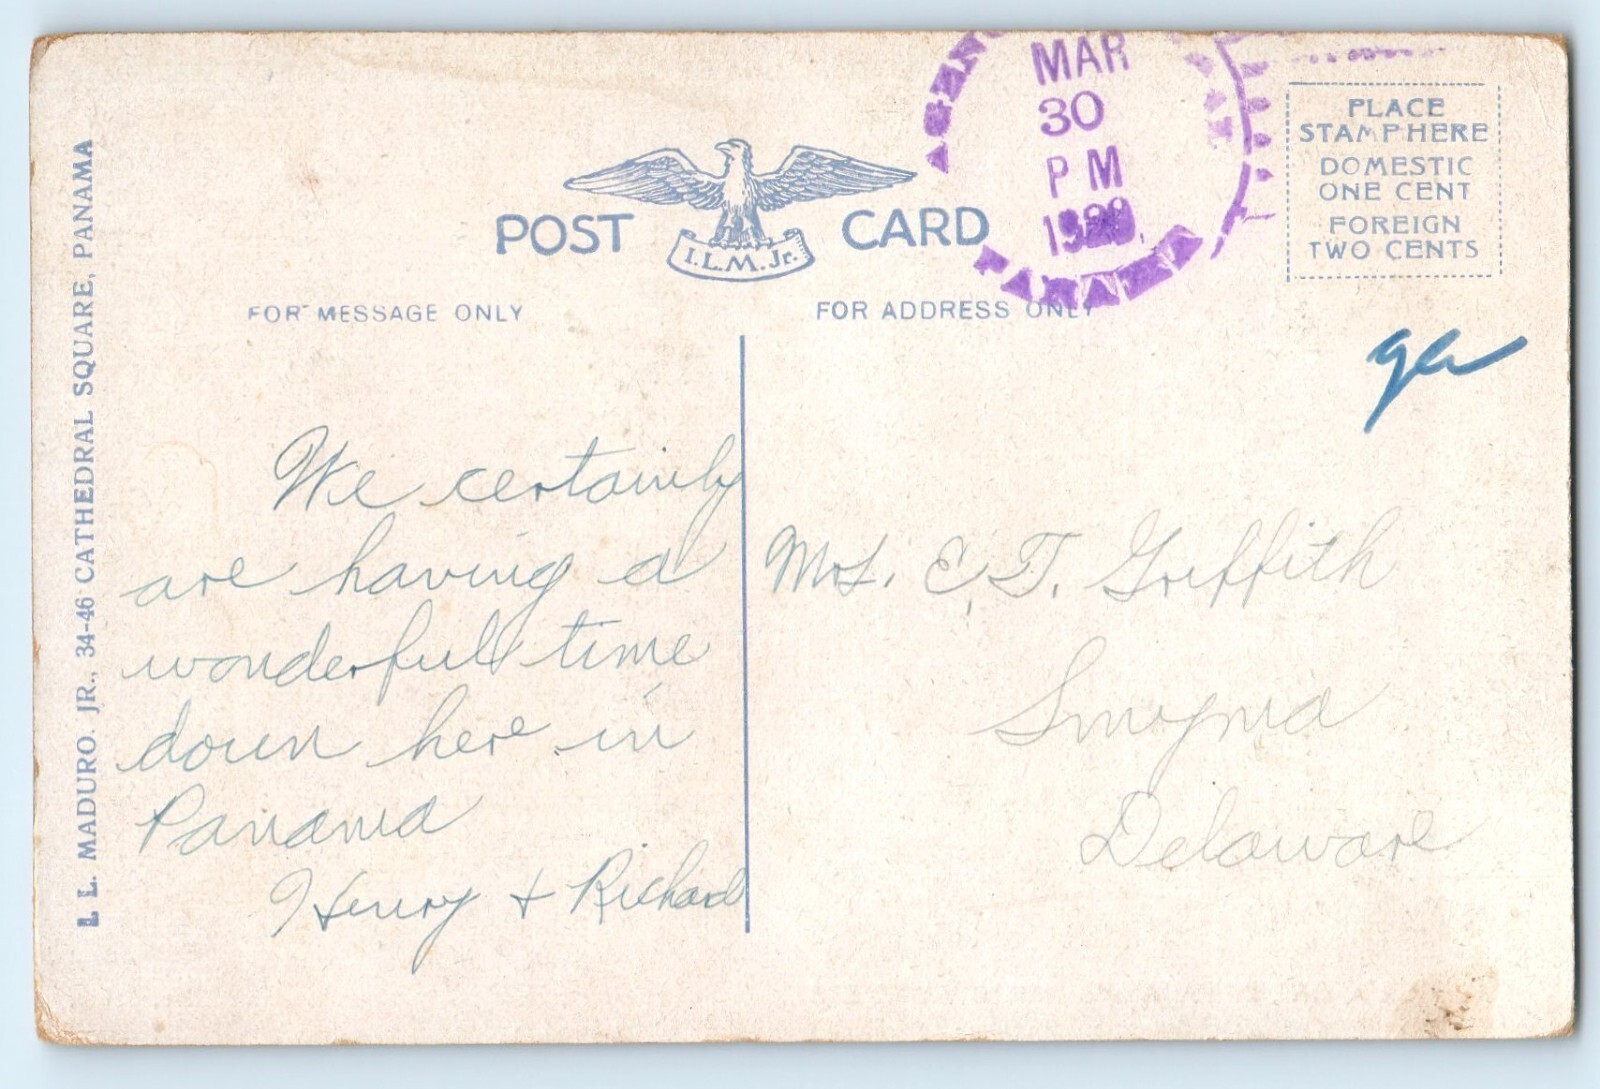 MAR
30
PM
PLACE
STAMP HERE
DOMESTIC
ONE CENT
FOREIGN
TWO CENTS
POST CARD
I.L.M. Jr.
FOR MESSAGE ONLY
FOR ADDRESS ONLY
I. L. MADURO. JR., 34-46 CATHEDRAL SQUARE, PANAMA
We certainly
are having a
wonderful time
down here in
Panama
Henry + Richard
Mrs. E. T. Griffith
Smyrna
Delaware